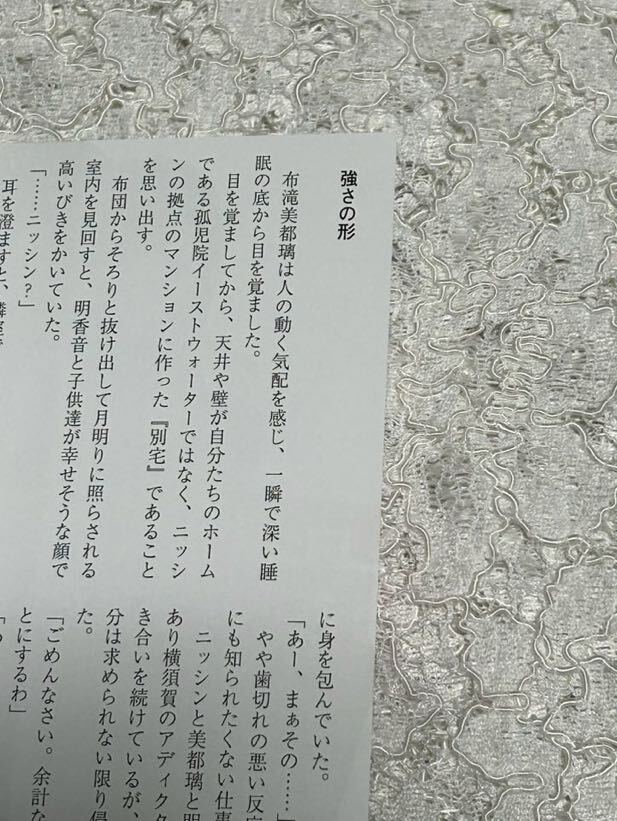 強さの形
布滝美都璃は人の動く気配を感じ、一瞬で深い睡
眠の底から目を覚ました。
目を覚ましてから、天井や壁が自分たちのホーム
である孤児院イーストウォーターではなく、ニッシ
ンの拠点のマンションに作った『別宅』であること
を思い出す。
布団からそろりと抜け出して月明りに照らされる
室内を見回すと、明香音と子供達が幸せそうな顔で
高いびきをかいていた。
「……ニッシン？」
耳を澄ますと、隣室で
に身を包んでいた。
「あー、まぁその……」
やや歯切れの悪い反応
にも知られたくない仕事
ニッシンと美都璃と明
あり横須賀のアディクタ
き合いを続けているが、
分は求められない限り侵
た。
「ごめんなさい。余計な
とにするわ」